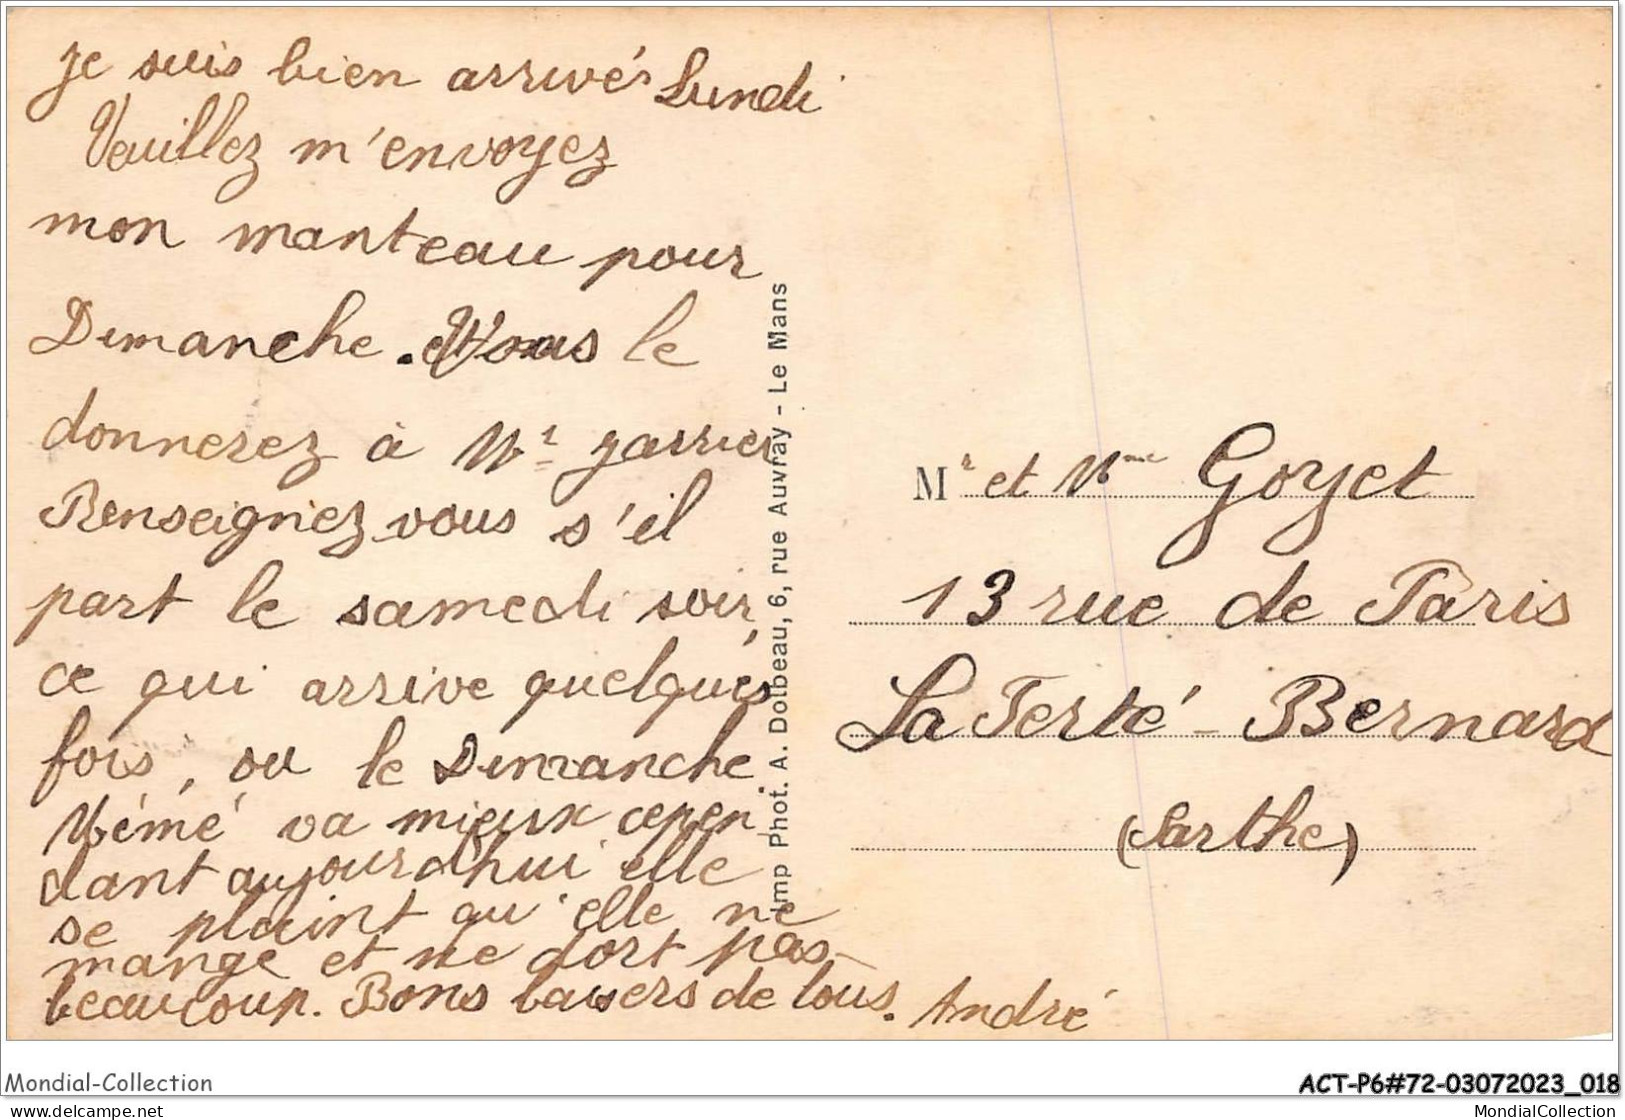 je suis bien arrivés Lundi
Veuillez m'envoyez
mon manteau pour
Dimanche. Vous le
donnerez à Mr garrier
Renseignez vous s'il
part le samedi soir,
ce qui arrive quelques
fois, ou le Dimanche.
Mémé va mieux cepen
dant aujourd'hui elle
se plaint qu'elle ne
mange et ne dort pas
beaucoup. Bons baisers de tous. André
Imp Phot. A. Dolbeau, 6, rue Auvray - Le Mans
Mr et Mme Goyet
13 rue de Paris
La Ferté-Bernard
(Sarthe)
Mondial-Collection
ACT-P6#72-03072023_018
www.delcampe.net
MondialCollection